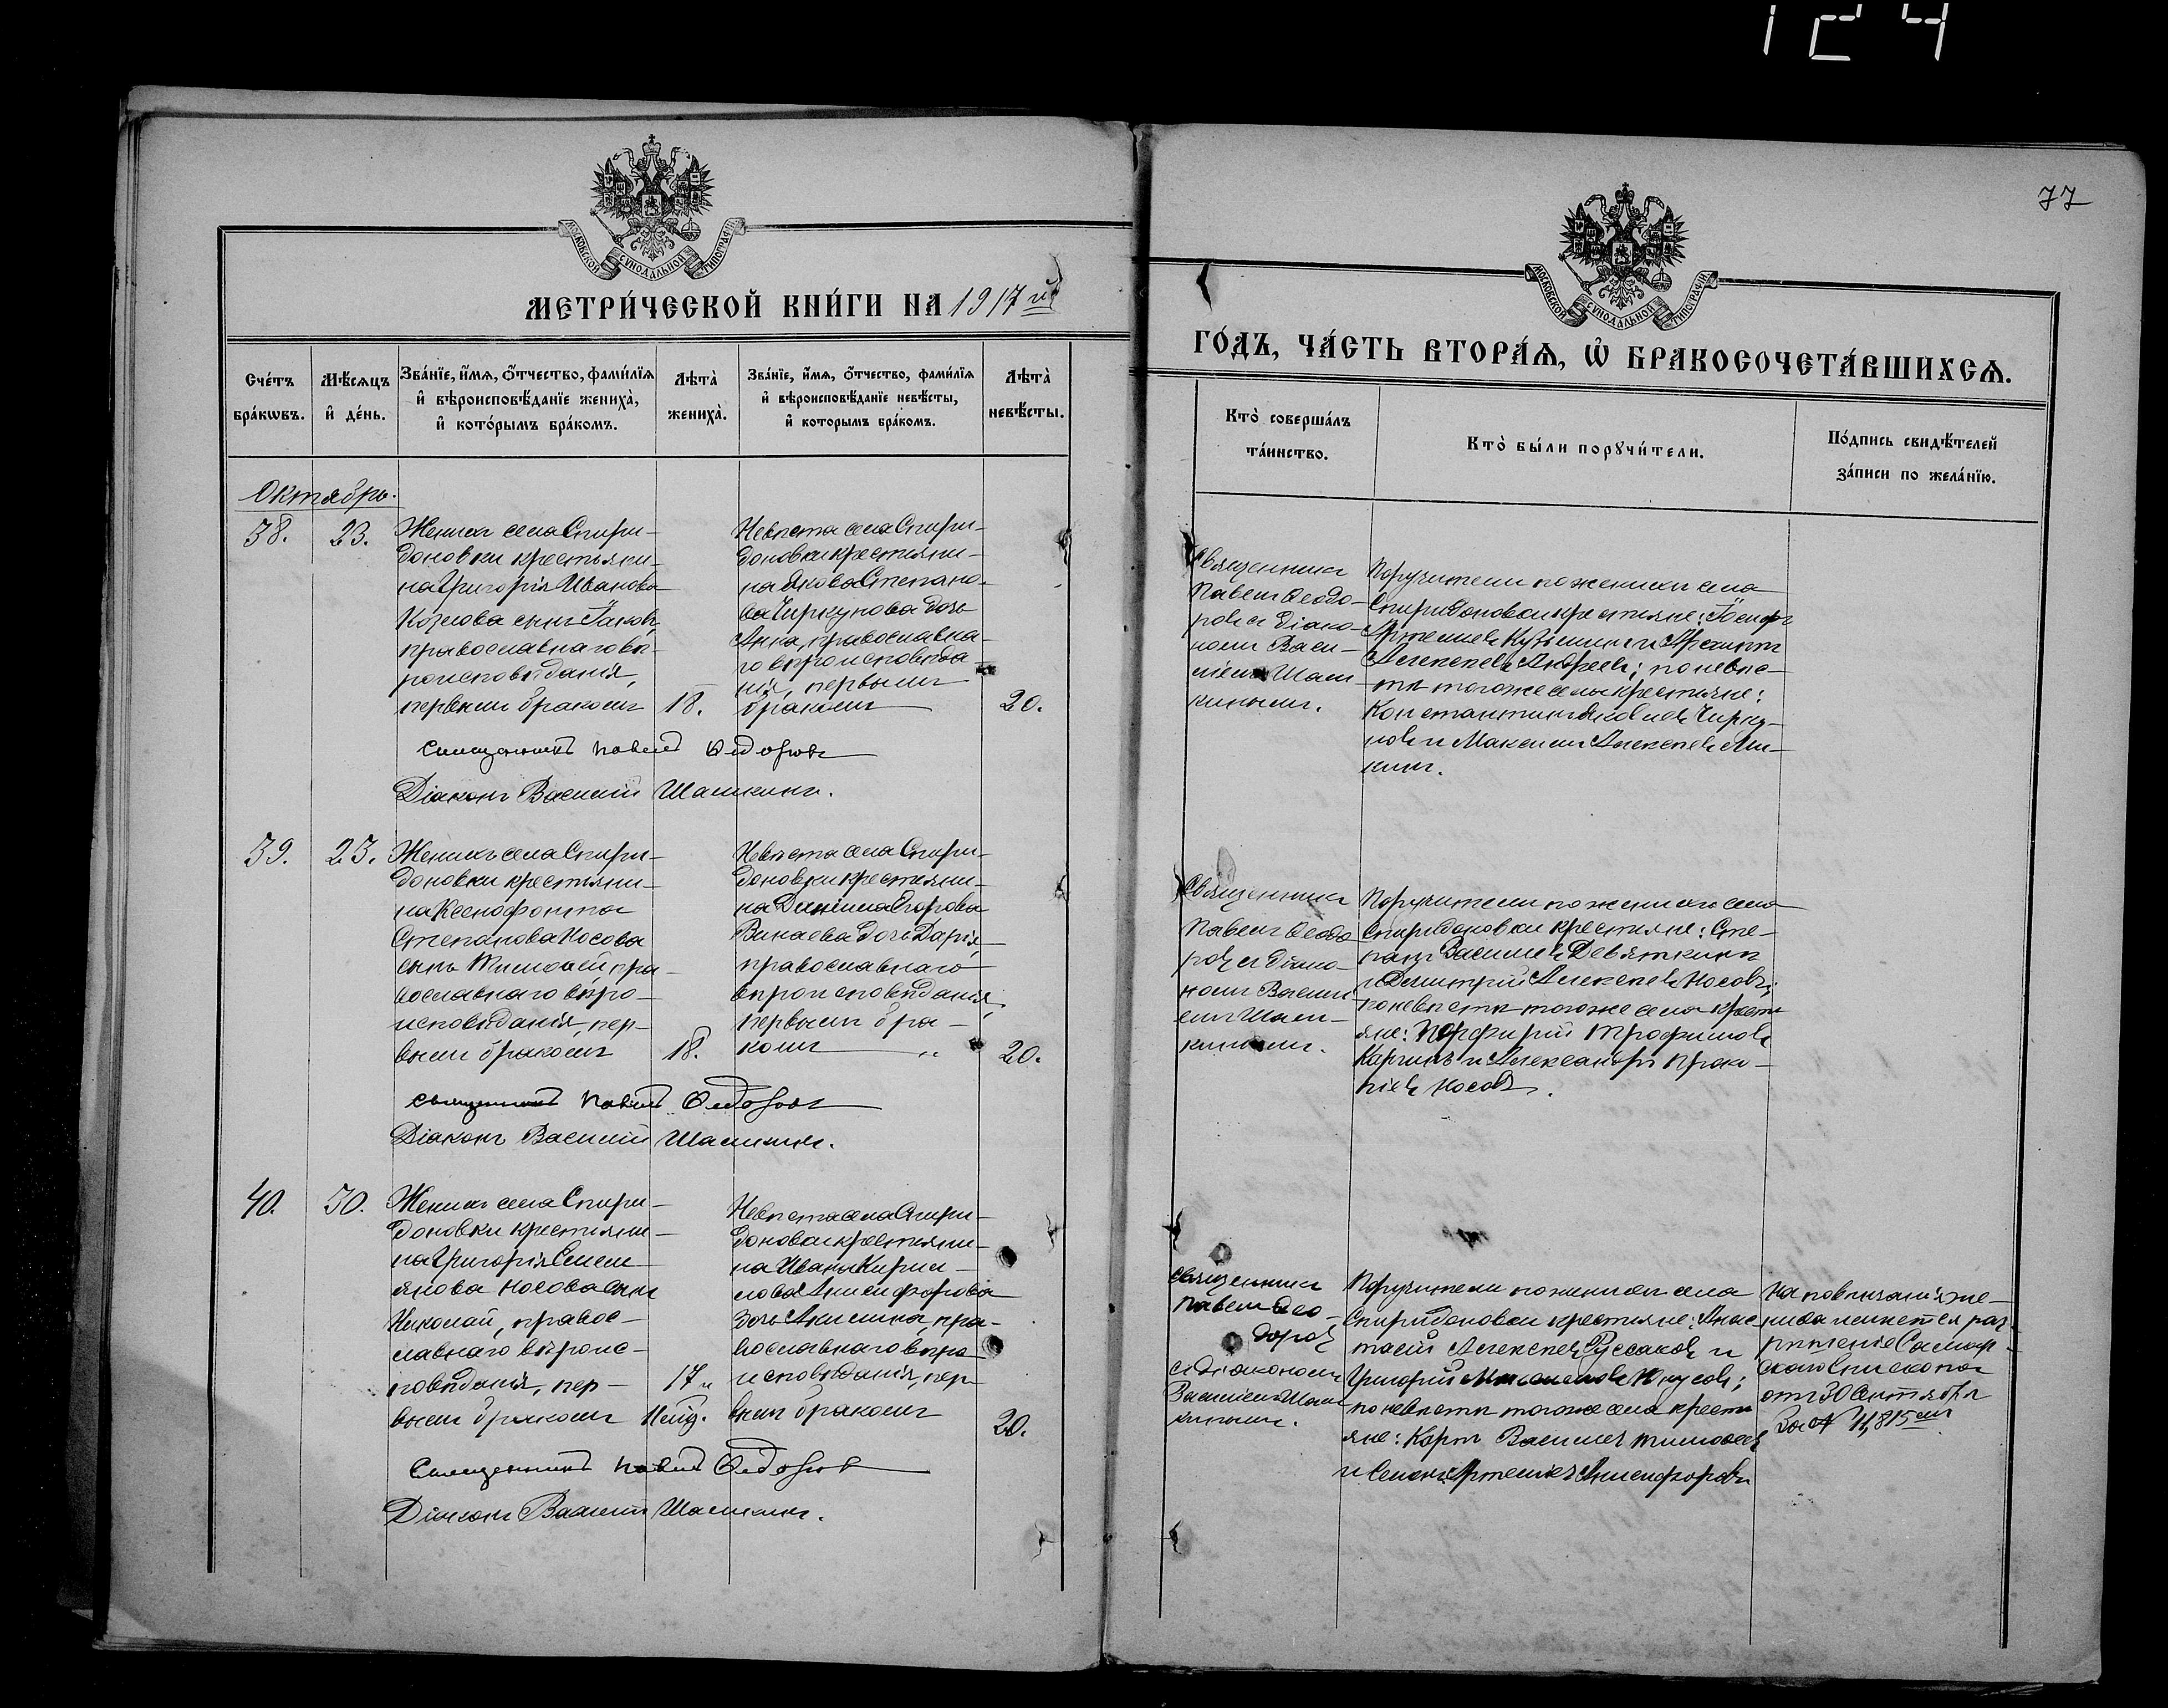 124
77
МОСКОВСКОЙ СУНОДАЛЬНОЙ ТИПОГРАФІИ
МЕТРИ́ЧЕСКОЙ КНИ́ГИ НА 1917 й
Сче́тъ бра́кωвъ.
Мѣ́сяцъ и҆ де́нь.
Зва́нїе, и҆́мя, ѻ҆́тчество, фами́лїя
и҆ вѣроисповѣ́данїе жениха̀,
и҆ кото́рымъ бра́комъ.
Лѣта̀ жениха̀.
Зва́нїе, и҆́мя, ѻ҆́тчество, фами́лїя
и҆ вѣроисповѣ́данїе невѣ́сты,
и҆ которымъ бра́комъ.
Лѣта̀ невѣ́сты.
Октябрь.
38.
23.
Женихъ села Спири-
доновки крестьяни-
на Григорія Иванова
Козлова сынъ Іаковъ,
православнаго вѣ-
роисповѣданія,
первымъ бракомъ
18.
Невѣста села Спири-
доновки крестьяни-
на Якова Степано-
ва Чиркунова дочь
Анна, православна-
го вѣроисповѣда-
нія, первымъ
бракомъ
20.
Священникъ Павелъ Ѳедоровъ
Діаконъ Василій Шашкинъ.
39.
23.
Женихъ села Спири-
доновки крестьяни-
на Ксенофонта
Степанова Носова
сынъ Тимоѳей, пра-
вославнаго вѣро-
исповѣданія, пер-
вымъ бракомъ
18.
Невѣста села Спири-
доновки крестьяни-
на Даніила Егорова
Винаева дочь Дарія,
православнаго
вѣроисповѣданія,
первымъ бра-
комъ
20.
Священникъ Павелъ Ѳедоровъ
Діаконъ Василій Шашкинъ.
40.
30.
Женихъ села Спири-
доновки крестьяни-
на Григорія Семе-
янова Носова сынъ
Николай, правос-
лавнаго вѣроис-
повѣданія, пер-
вымъ бракомъ
17 и
Невѣста села Спири-
доновки крестьяни-
на Ивана Кирил-
лова Анисифорова
дочь Акилина, пра-
вославнаго вѣро-
исповѣданія, пер-
вымъ бракомъ
20.
Священникъ Павелъ Ѳедоровъ
Діаконъ Василій Шашкинъ.
МОСКОВСКОЙ СУНОДАЛЬНОЙ ТИПОГРАФІИ
ГО́ДЪ, ЧА́СТЬ ВТОРА́Я, Ѽ БРАКОСОЧЕТА́ВШИХСЯ.
Кто̀ соверша́лъ
та́инство.
Кто̀ бы́ли порꙋчи́тели.
По́дпись свидѣ́телей
за́писи по жела́нїю.
Священникъ
Павелъ Ѳеодо-
ровъ съ діако-
номъ Васи-
ліемъ Шаш-
кинымъ.
Поручители по женихѣ села
Спиридоновки крестьяне: Іосифъ
Артемьевъ Кузьминъ и
Алексѣевъ Андреевъ; по невѣс-
тѣ того же села крестьяне:
Константинъ Яковлевъ Чирку-
новъ и Максимъ Алексѣевъ
Священникъ
Павелъ Ѳеодо-
ровъ съ діако-
номъ Васил-
емъ Шаш-
кинымъ.
Поручители по женихѣ села
Спиридоновки крестьяне: Сте-
панъ Васильевъ Девяткинъ
и Димитрій Алексѣевъ Носовъ;
по невѣстѣ того же села кресть
яне: Порфирій Трофимовъ
Каргинъ и Александръ Проко-
піевъ Носовъ.
Священникъ
Павелъ Ѳео-
доровъ
съ діакономъ
Василіемъ Шаш
кинымъ.
Поручители по женихѣ села
Спиридоновки крестьяне: Анас
тасій Алексѣевъ Руссаковъ и
Григорій
по невѣстѣ того же села кресть
яне: Карпъ Васильевъ Тимоѳеевъ
и Семенъ Артемьевъ Анисифоровъ
На повѣнчаніе же-
ниха имѣется раз
рѣшеніе Самар-
скаго Епископа
отъ 30 Сентября
За № 11,815